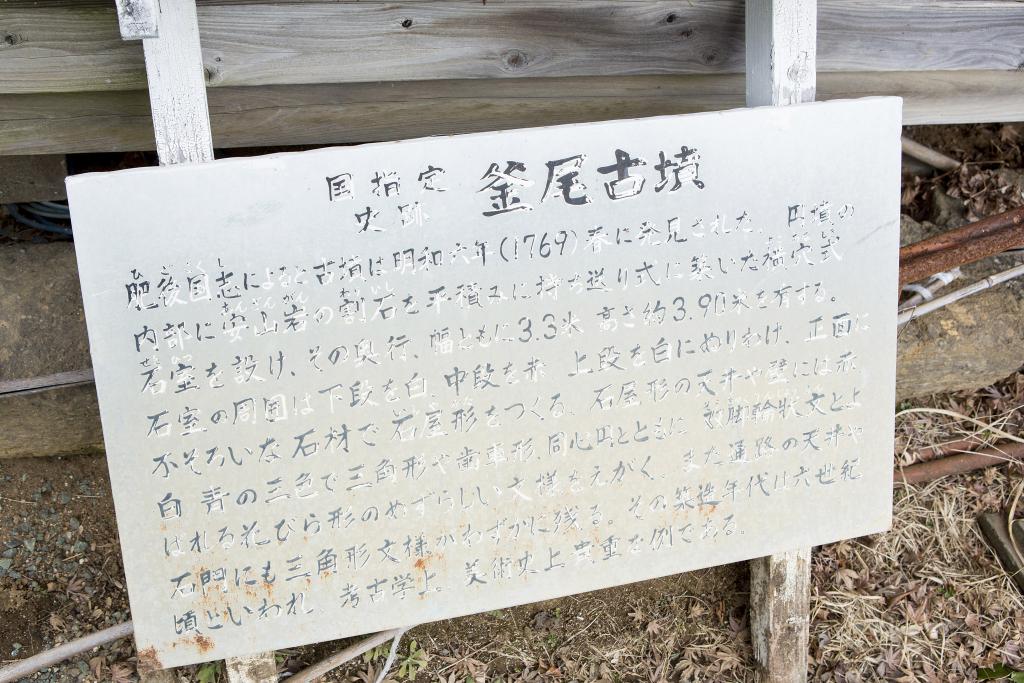 国指定
史跡 釜尾古墳
肥後国志によると古墳は明和六年(1769)春に発見された。円墳の
内部に安山岩の割石を平積みに持ち送り式に築いた横穴式
石室を設け、その奥行、幅ともに3.3米 高さ約3.90米を有する。
石室の周囲は下段を白、中段を赤 上段を白にぬりわけ、正面に
不ぞろいな石材で石屋形をつくる。石屋形の天井や壁には赤
白 青の三色で三角形や歯車形、同心円とともに 双脚輪状文とよ
ばれる花びら形のめずらしい文様をえがく。また通路の天井や
石門にも三角形文様がわずかに残る。その築造年代は六世紀
頃といわれ、考古学上、美術史上貴重な例である。